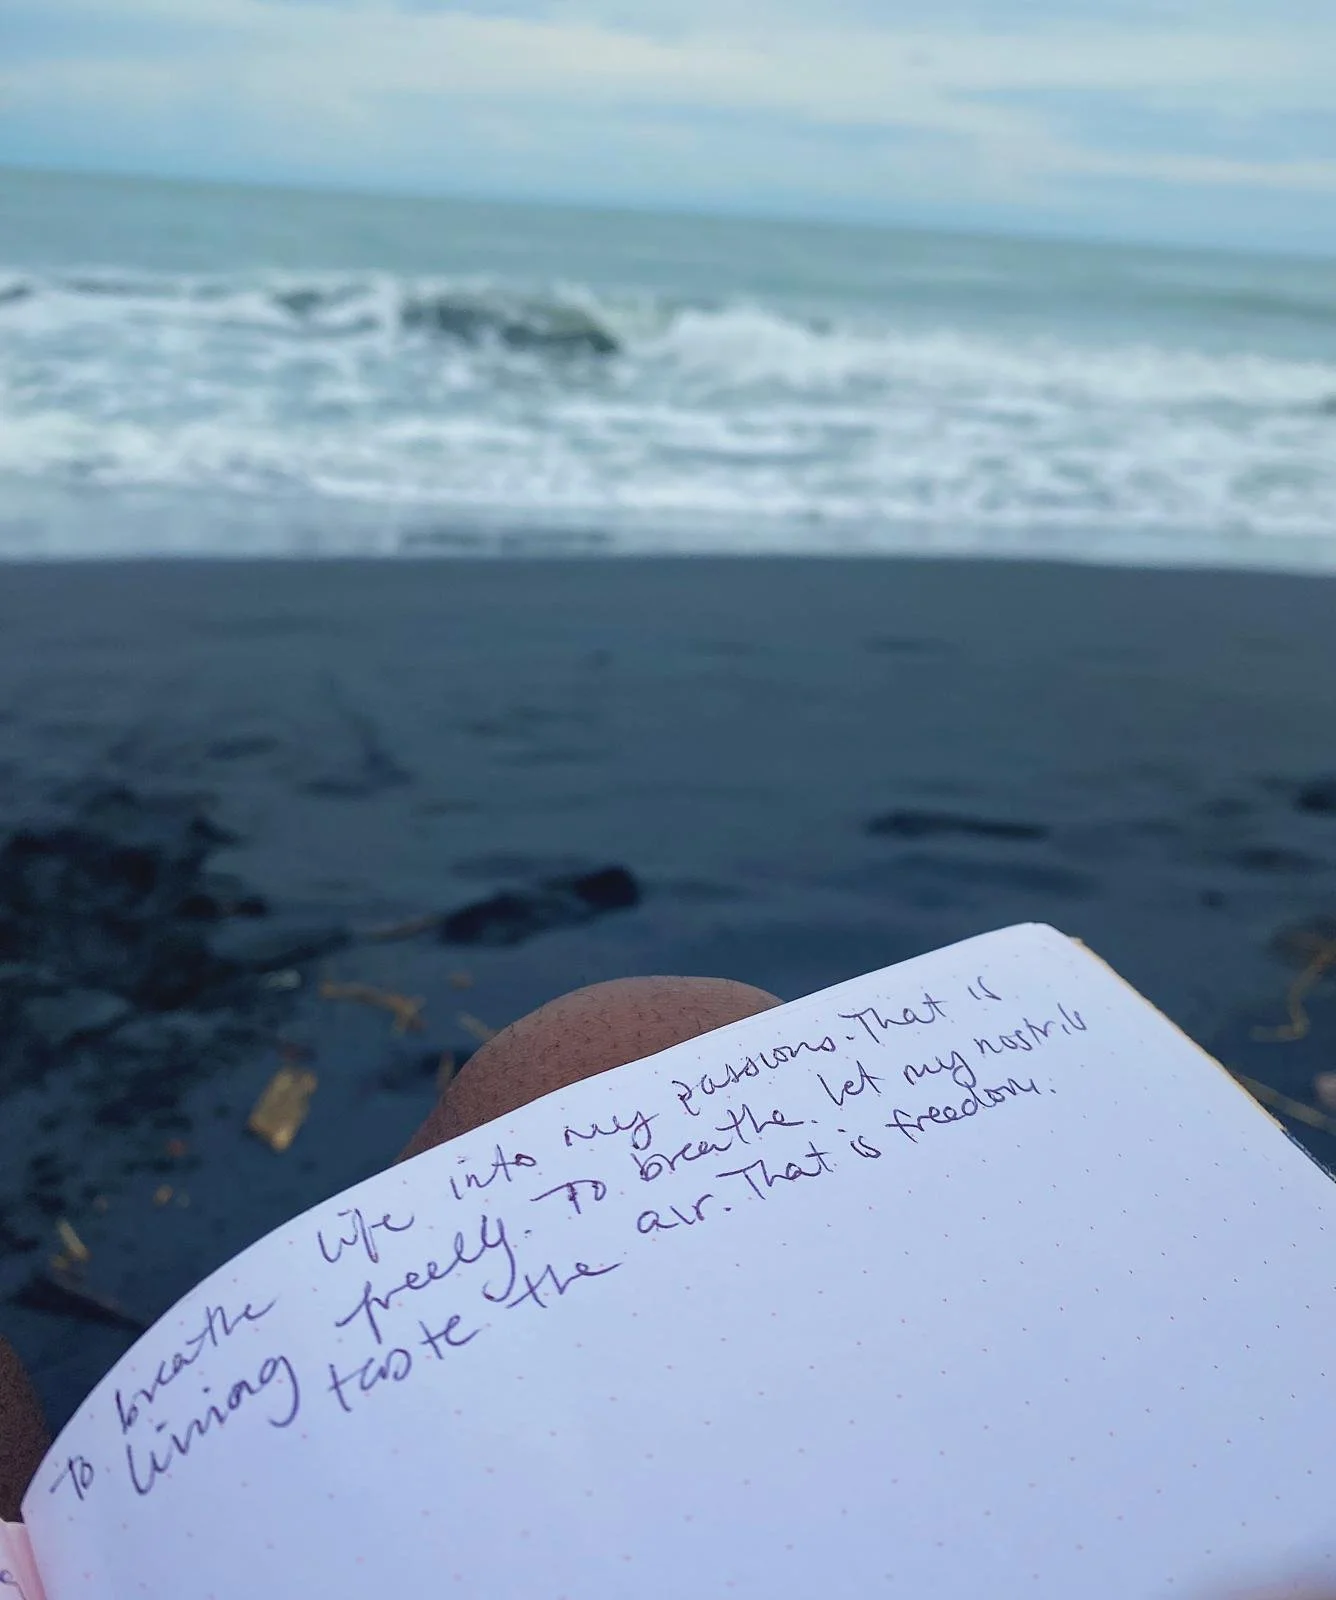 To breathe life into my passions. That is
living freely. To breathe. Let my nostrils
taste the air. That is freedom.